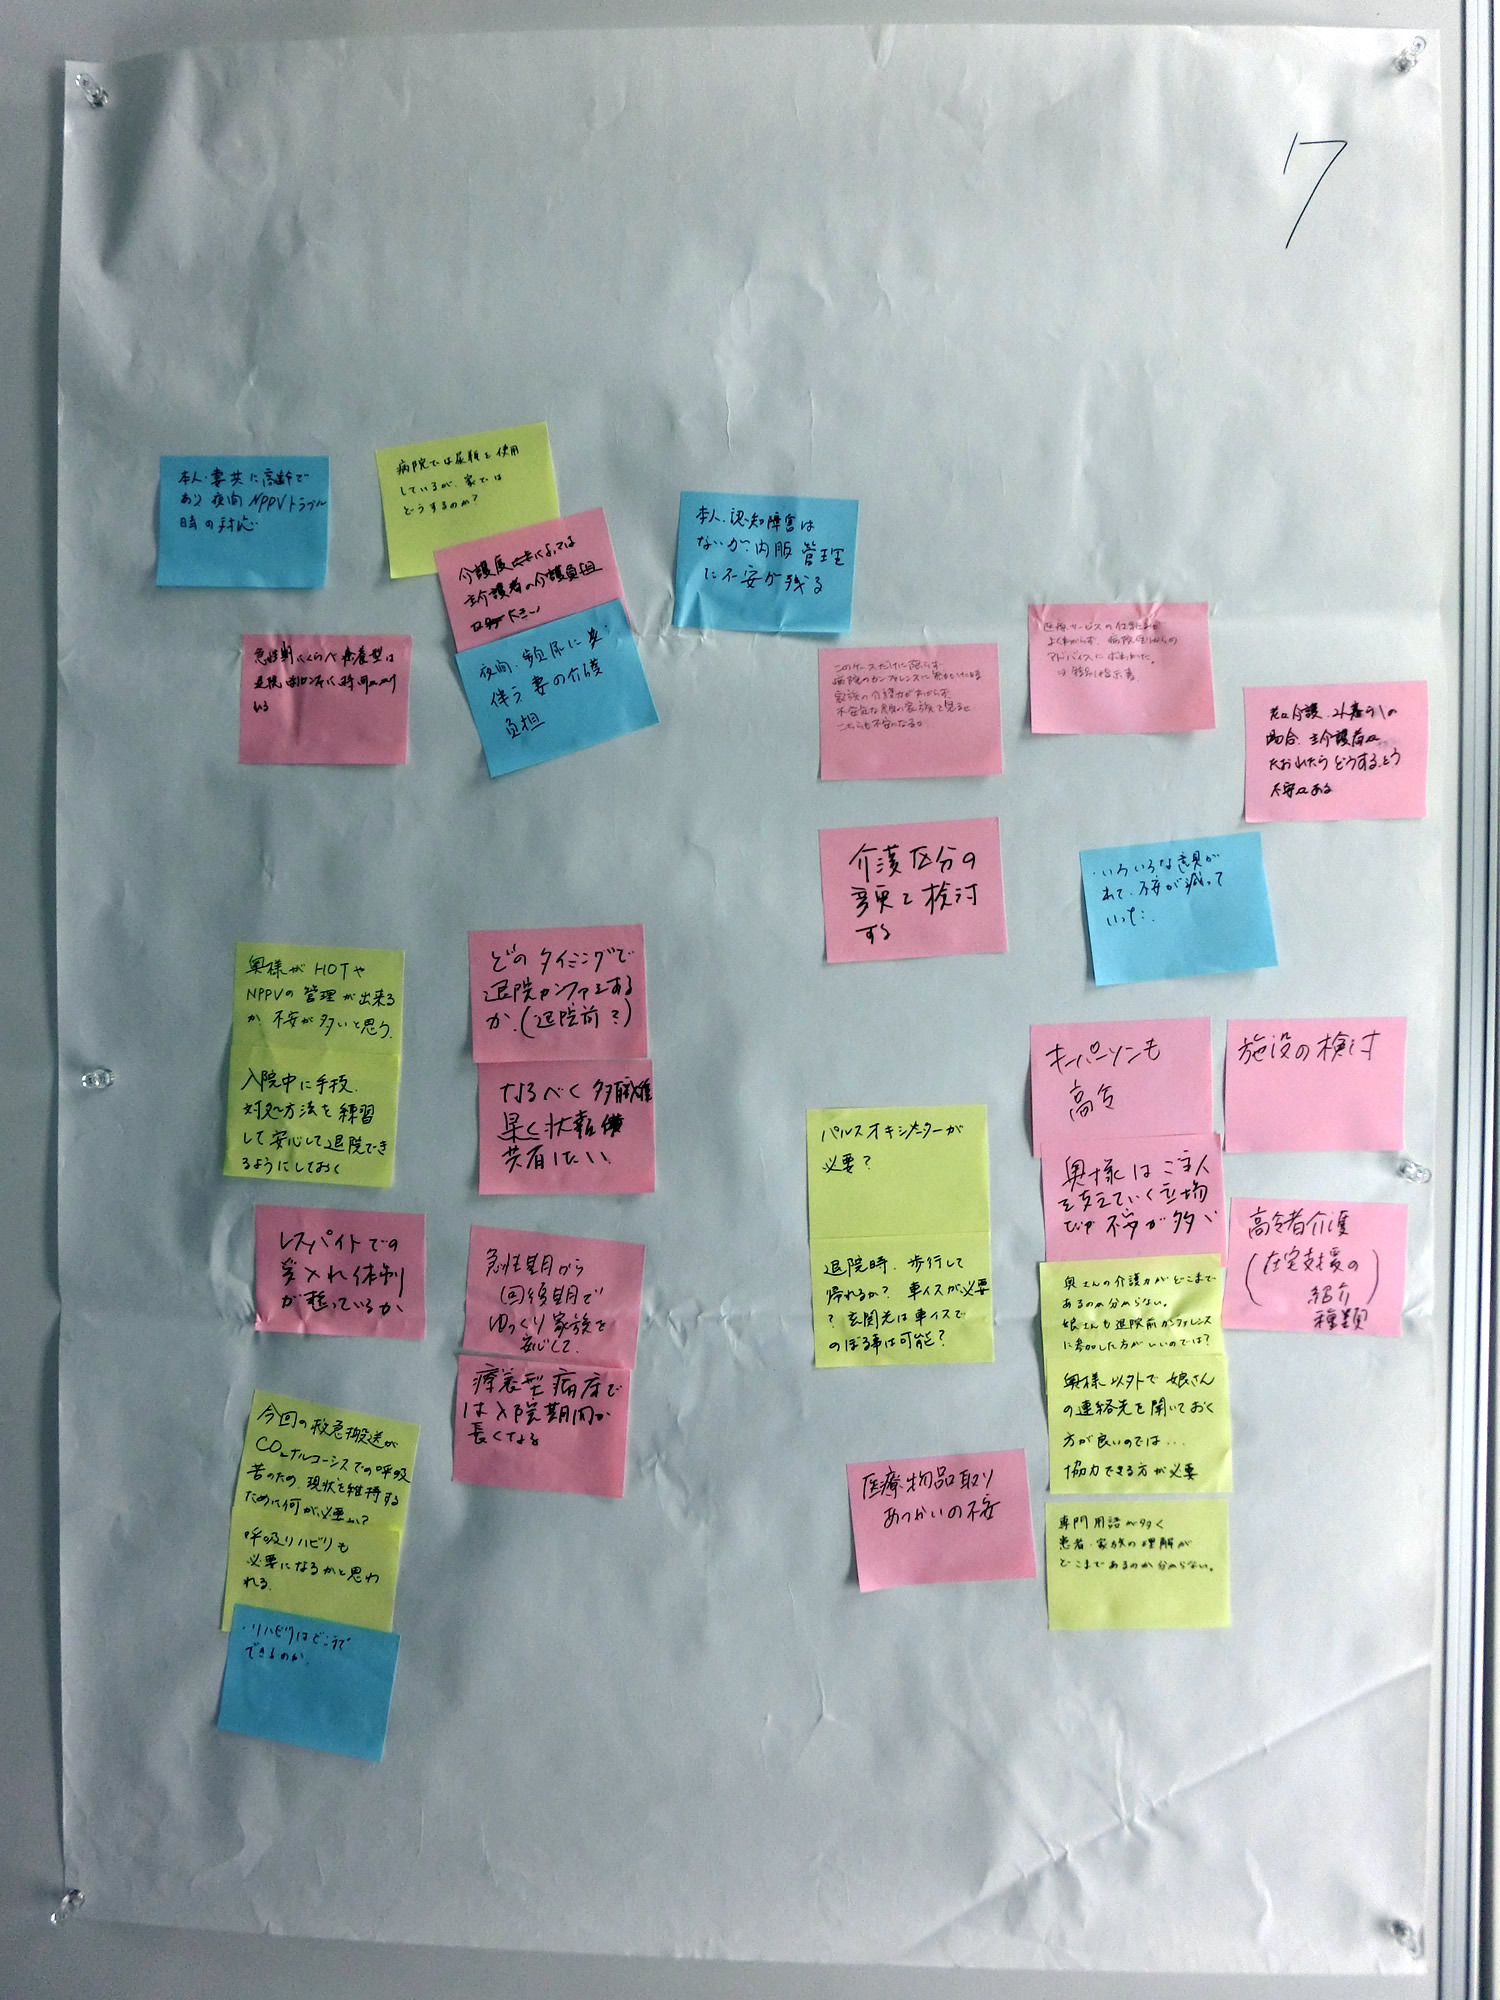 7
本人・妻共に高齢で
あり夜間NPPVトラブル
時の対応
病院では尿瓶を使用
しているが、家では
どうするのか?
介護度によっては
主介護者の介護負担
大きい
夜間、頻尿に
伴う妻の介護
負担
本人、認知障害は
ないが、内服管理
に不安が残る
急性期にくらべ療養型は
退院
いる
このケースだけに限らず
病院のカンファレンスに
家族の介護力がわからず
不安気な
こちらも不安になる。
医療サービスの
よくわからず、病院
アドバイスに
特別指示書
老々介護、2人暮らしの
場合、主介護者が
たおれたらどうする、という
不安がある
介護区分の
変更を検討
する
・いろいろな意見が
不安が減って
いった。
奥様がHOTや
NPPVの管理が出来る
か不安が多いと思う。
入院中に手技、
対処方法を練習
して安心して退院でき
るようにしておく
どのタイミングで
退院カンファをする
か。(退院前?)
なるべく多職種
早く状態
共有したい。
レスパイトでの
受入れ体制
が整っているか
急性期から
回復期で
ゆっくり家族を
安心して。
療養型病床で
は入院期間が
長くなる
今回の救急搬送が
CO₂ナルコーシスでの呼吸
苦のため、現状を維持する
ために何が必要か?
呼吸リハビリも
必要になるかと思わ
れる。
・リハビリはどこで
できるのか。
パルスオキシメーターが
必要?
退院時、歩行して
帰れるか? 車イスが必要
? 玄関先は車イスで
のぼる事は可能?
医療物品取り
あつかいの不安
キーパーソンも
高令
奥様はご主人
を支えていく立場
不安が多い
奥さんの介護力がどこまで
あるのか分からない。
娘さんも退院前カンファレンス
に参加した方がいいのでは?
奥様以外で娘さん
の連絡先を聞いておく
方が良いのでは...
協力できる方が必要
専門用語が多く
患者・家族の理解が
どこまであるのか分からない。
施設の検討
高令者介護
(在宅支援の
紹介
種類)